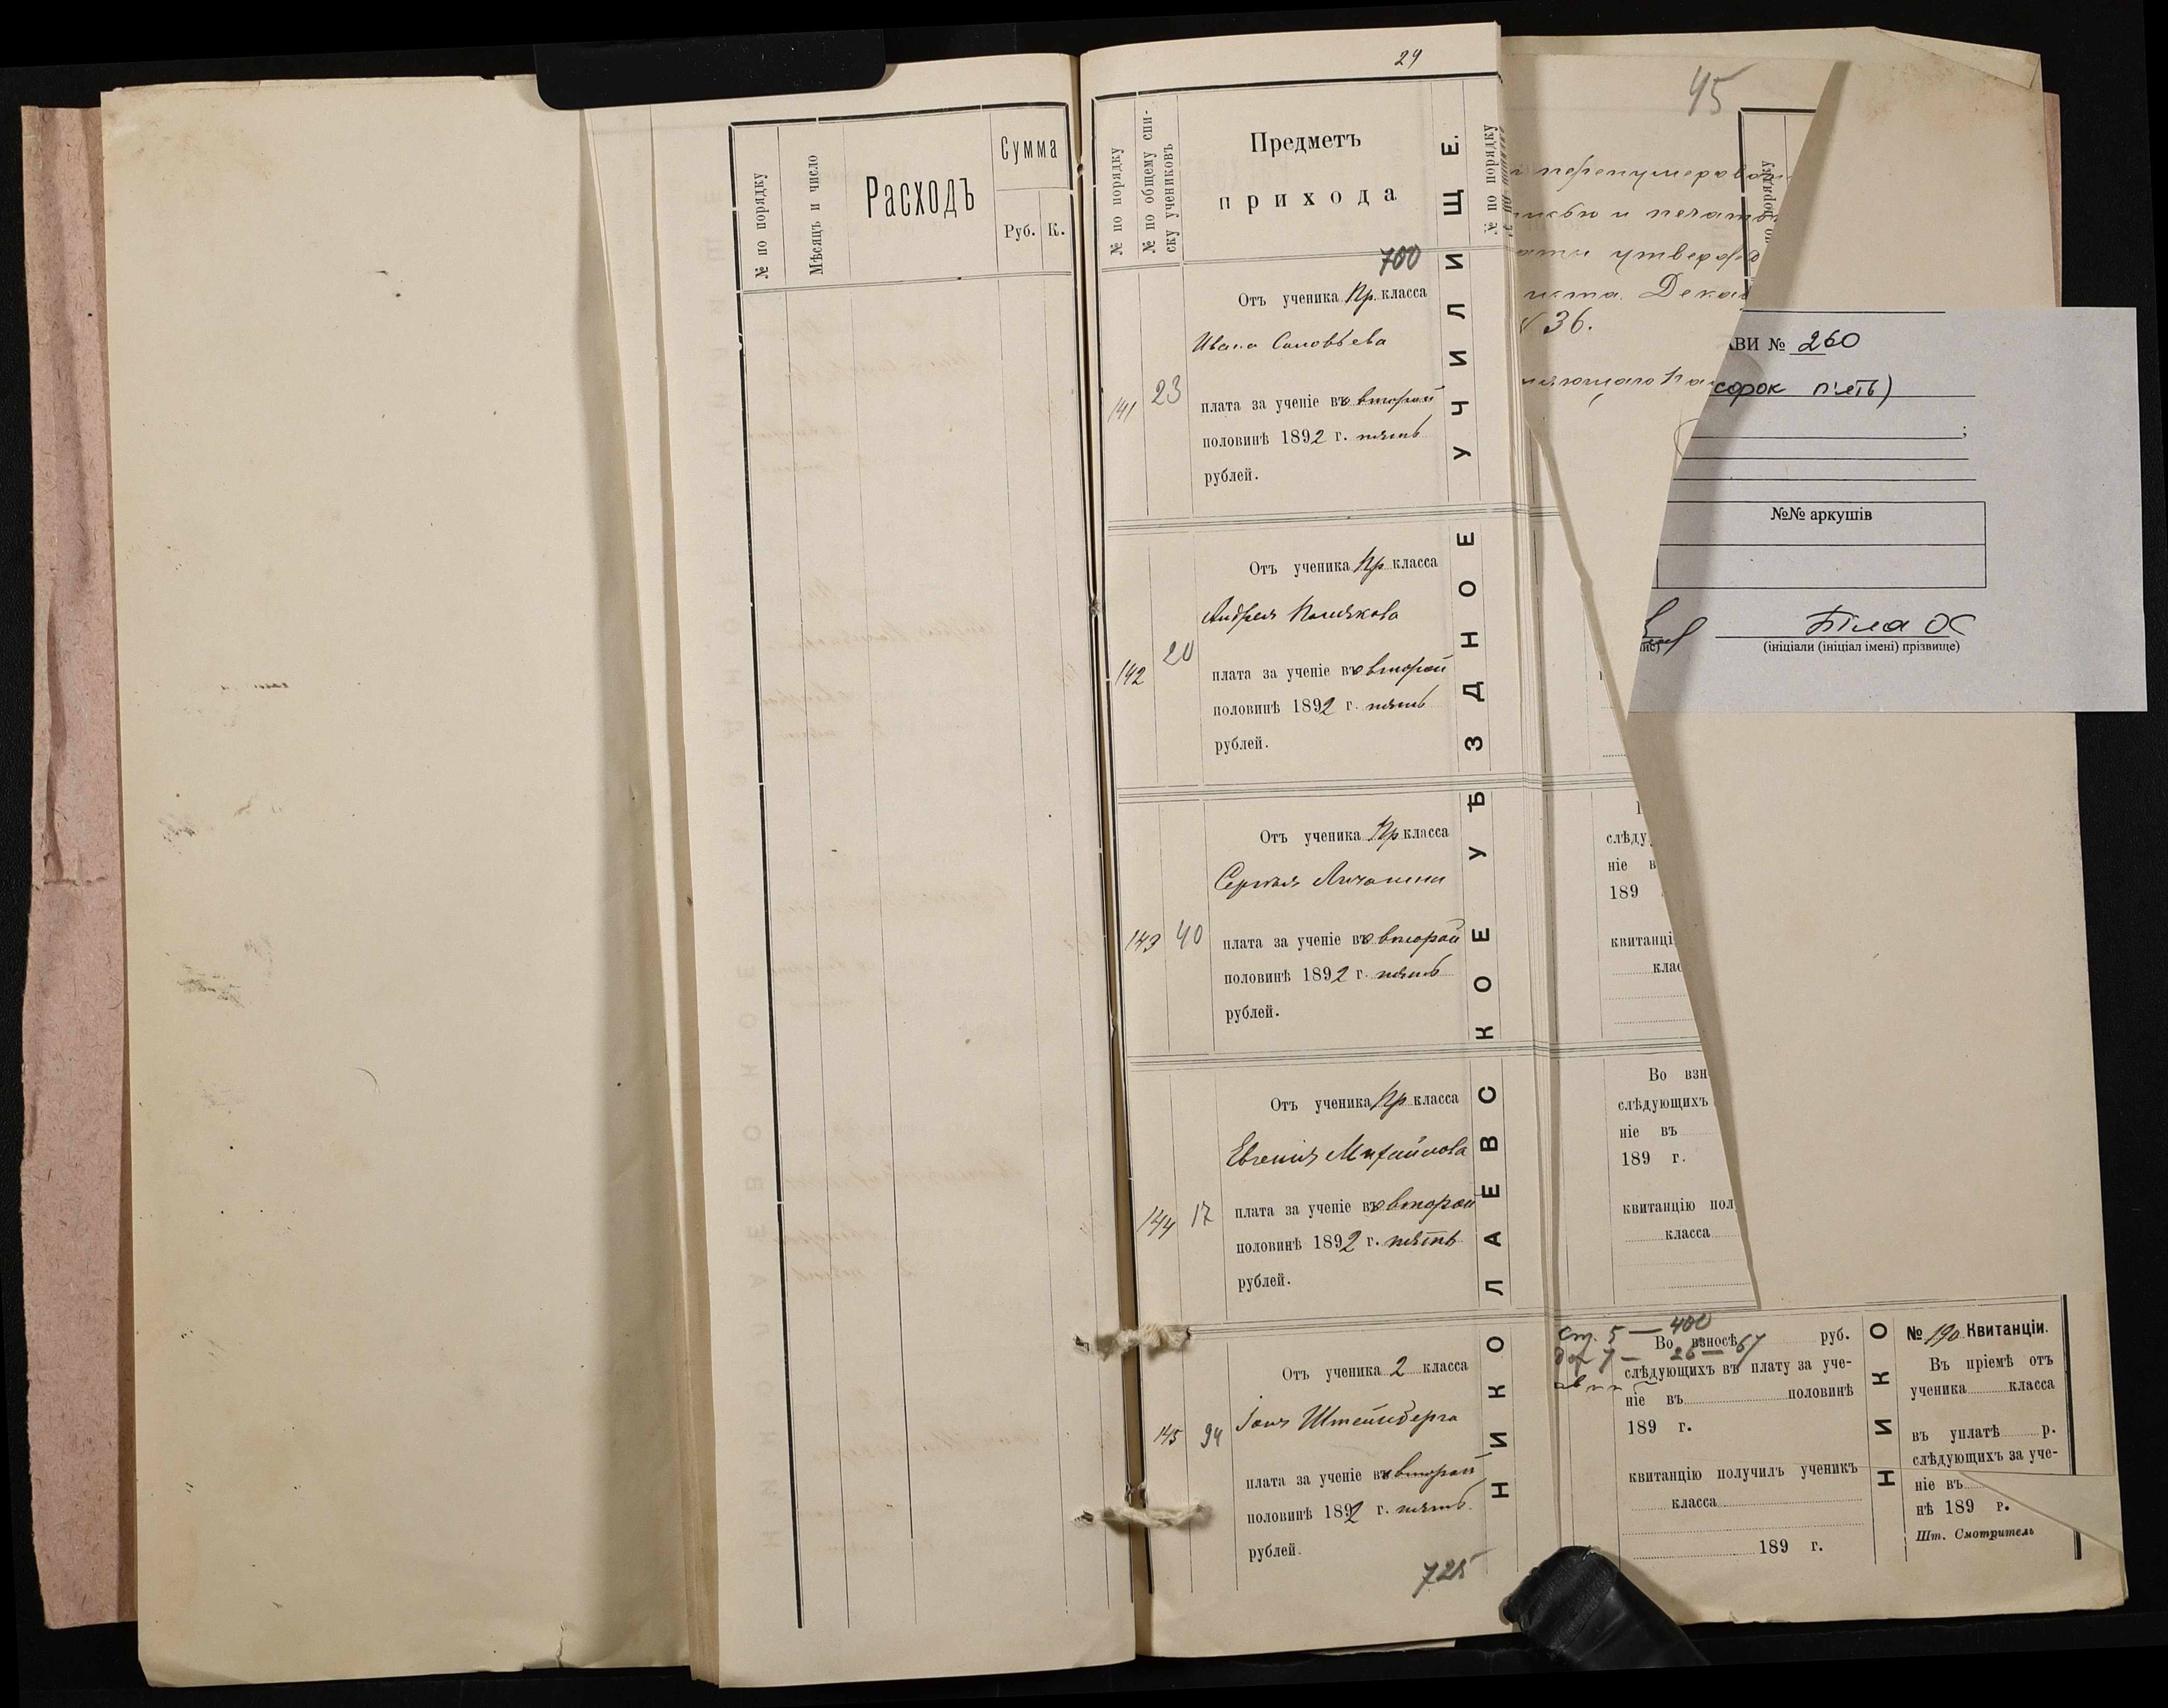 № по порядку
Мѣсяцъ и число
Расходъ
Сумма
Руб. К.
29
№ по порядку
№ по общему спи-
ску учениковъ
Предметъ
прихода
№ по порядку
700
141
23
Отъ ученика Пр. класса
Ивана Соловьева
плата за ученіе въ второй
половинѣ 1892 г. пять
рублей.
142
20
Отъ ученика Пр класса
Андрея Полякова
плата за ученіе въ второй
половинѣ 1892 г. пять
рублей.
143
40
Отъ ученика Пр класса
Сергѣя
плата за ученіе въ второй
половинѣ 1892 г. пять
рублей.
144
17
Отъ ученика Пр класса
Евгенія Михайлова
плата за ученіе въ второй
половинѣ 1892 г. пять
рублей.
145
94
Отъ ученика 2 класса
Штейнберга
плата за ученіе въ второй
половинѣ 1892 г. пять
рублей.
725
НИКОЛАЕВСКОЕ УѢЗДНОЕ УЧИЛИЩЕ.
45
36.
порядку
слѣду
ніе в
189
квитанці
клас
Во взн
слѣдующихъ
ніе въ
189 г.
квитанцію пол
класса
ст. 5 — 400
26 — 67
Во взносѣ руб.
слѣдующихъ въ плату за уче-
ніе въ половинѣ
189 г.
квитанцію получилъ ученикъ
класса
189 г.
НИКО
№ 190 Квитанціи.
Въ пріемѣ отъ
ученика класса
въ уплатѣ р.
слѣдующихъ за уче-
ніе въ
нѣ 189 г.
Шт. Смотритель
ВИ № 260
сорок п'ять)
;
№№ аркушів
Біла ОС
(ініціали (ініціал імені) прізвище)